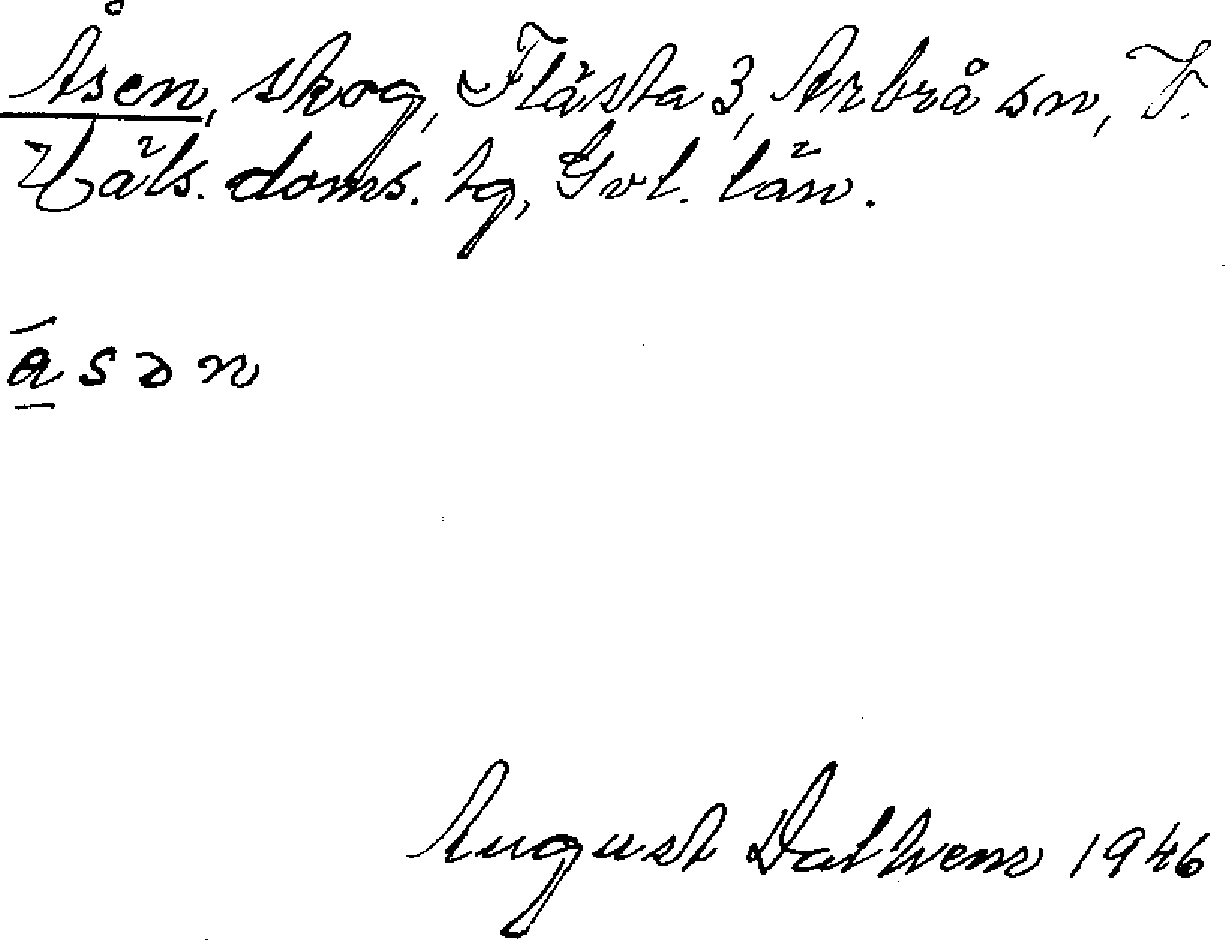 Åsen, skog, Flästa 3, Arbrå sn, V.
Häls. doms. tg, Gvl. län.
a̱̅ s ɔ n
August Dathem 1946